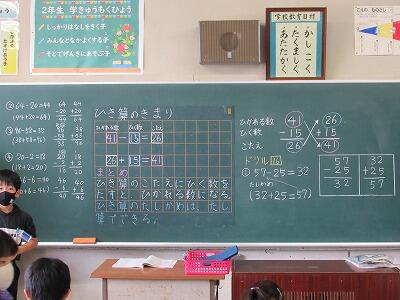 2年生 学きゅうもくひょう
しっかりはなしをきく子
みんなとなかよくする子
そとでげんきにあそぶ子
学校教育目標
かしこく
たくましく
あたたかく
② 64-20=44
(44+20=64)
③ 96-58=38
(38+58=96)
④ 20-2=18
(18+2=20)
ひき算のきまり
ひかれる数 ひく数 こたえ
41-15=26
26+15=41
まとめ
ひき算のこたえにひく数を
たすと、ひかれる数になる。
ひき算のたしかめは、たし
算でできる。
ひかれる数 41 26
ひく数 -15 +15
こたえ 26 41
ドリル16
① 57-25=32
たしかめ
(32+25=57)
57
-25
32
32
+25
57